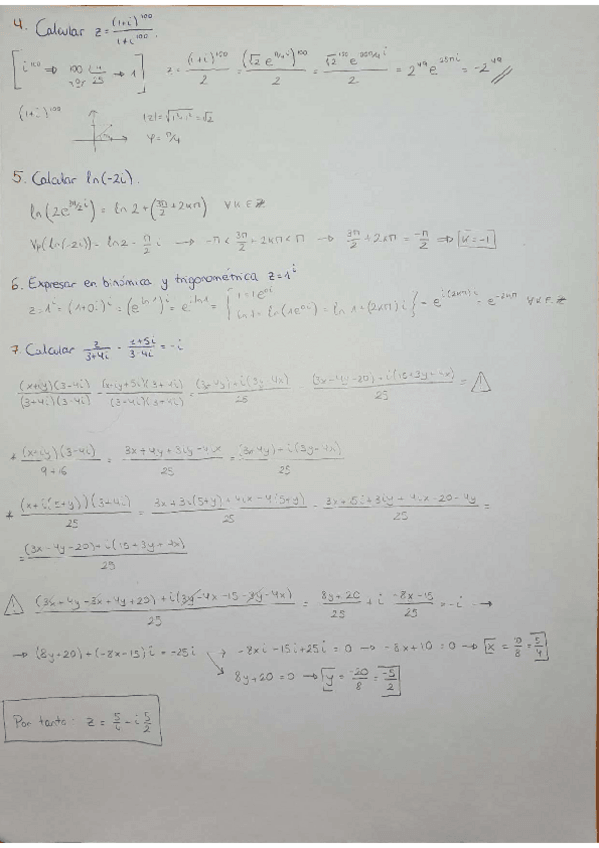 4. Calcular z = (1+i)^100 / 1+i^100 .
[ i^100 ⇒ 100 → 1 ] z = (1+i)^100 / 2 = (√2 e^(π/4 i))^100 / 2 = √2^100 e^(100π/4 i) / 2 = 2^49 e^(25πi) = -2^49
(1+i)^100 |z| = √(1²+1²) = √2
φ = π/4
5. Calcular ln(-2i).
ln(2e^(3π/2 i)) = ln 2 + (3π/2 + 2kπ) ∀ k ∈ Z
Vp(ln(-2i)) = ln 2 - π/2 i → -π < 3π/2 + 2kπ < π → 3π/2 + 2kπ = -π/2 ⇒ k = -1
6. Expresar en binómica y trigonométrica z = 1^i
z = 1^i = (1+0i)^i = (e^(ln 1))^i = e^(i ln 1) = { 1 = 1e^(0i) ln 1 = ln(1e^(0i)) = ln 1 + (2kπ) i } = e^(i(2kπ)i) = e^(-2kπ) ∀ k ∈ Z
7. Calcular z/3+4i - z+5i/3-4i = -i
(x+iy)(3-4i) / (3+4i)(3-4i) - (x+iy+5i)(3+4i) / (3-4i)(3+4i) = (3x+4y)+i(3y-4x) / 25 - (3x-4y-20)+i(15+3y+4x) / 25 = ⚠
* (x+iy)(3-4i) / 9+16 = 3x+4y+3iy-4ix / 25 = (3x+4y)+i(3y-4x) / 25
* (x+i(5+y))(3+4i) / 25 = 3x+3i(5+y)+4ix-4(5+y) / 25 = 3x+15i+3iy+4ix-20-4y / 25 =
= (3x-4y-20)+i(15+3y+4x) / 25
⚠ (3x+4y-3x+4y+20)+i(3y-4x-15-3y-4x) / 25 = 8y+20 / 25 + i -8x-15 / 25 = -i →
→ (8y+20)+(-8x-15)i = -25i → -8xi-15i+25i = 0 → -8x+10 = 0 → x = 10/8 = 5/4
8y+20 = 0 → y = -20/8 = -5/2
Por tanto: z = 5/4 - i 5/2